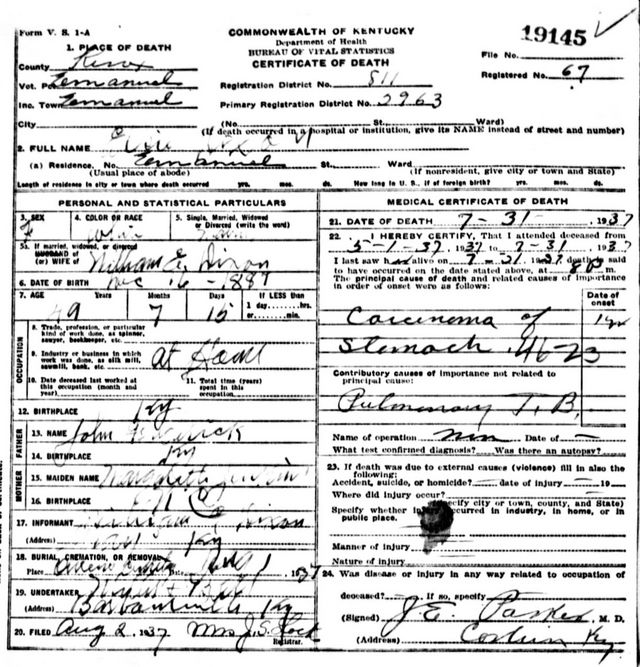 Form V. S. 1-A
COMMONWEALTH OF KENTUCKY
Department of Health
BUREAU OF VITAL STATISTICS
CERTIFICATE OF DEATH
19145
File No.
Registered No. 67
1. PLACE OF DEATH
County Knox
Vot. Pct. Emanuel
Inc. Town Emanuel
City
Registration District No. 511
Primary Registration District No. 2963
(No. St. Ward)
(If death occurred in a hospital or institution, give its NAME instead of street and number)
2. FULL NAME
(a) Residence. No. Emanuel St. Ward
(Usual place of abode)
(If nonresident, give city or town and State)
Length of residence in city or town where death occurred yrs. mos. ds. How long in U. S., if of foreign birth? yrs. mos. ds.
PERSONAL AND STATISTICAL PARTICULARS
3. SEX
F
4. COLOR OR RACE
5. Single, Married, Widowed
or Divorced (write the word)
5a. If married, widowed, or divorced
HUSBAND of
(or) WIFE of William E. Dixon
6. DATE OF BIRTH Dec 16 - 1887
7. AGE
49 Years 7 Months 15 Days
If LESS than
1 day, hrs.
or min.
OCCUPATION
8. Trade, profession, or particular
kind of work done, as spinner,
sawyer, bookkeeper, etc.
9. Industry or business in which
work was done, as silk mill,
sawmill, bank, etc.
at Home
10. Date deceased last worked at
this occupation (month and
year)
11. Total time (years)
spent in this
occupation
12. BIRTHPLACE Ky
FATHER
13. NAME John
14. BIRTHPLACE Ky
MOTHER
15. MAIDEN NAME
16. BIRTHPLACE
17. INFORMANT William E Dixon
(Address) Ky
18. BURIAL, CREMATION, OR REMOVAL
Place Date Aug 1 1937
19. UNDERTAKER
(Address) Barbourville Ky
20. FILED Aug 2 1937 Mrs J. S. Lock
Registrar.
MEDICAL CERTIFICATE OF DEATH
21. DATE OF DEATH 7-31- 1937
22. I HEREBY CERTIFY, That I attended deceased from
5-1-37, 1937 to 7-31, 1937
I last saw h alive on 7-31, 1937 death is said
to have occurred on the date stated above, at 8 m.
The principal cause of death and related causes of importance
in order of onset were as follows:
Date of
onset
Carcinoma of
Stomach 46-23
Contributory causes of importance not related to
principal cause:
Pulmonary T. B.
Name of operation Date of
What test confirmed diagnosis? Was there an autopsy?
23. If death was due to external causes (violence) fill in also the
following:
Accident, suicide, or homicide? date of injury 19
Where did injury occur?
(Specify city or town, county, and State)
Specify whether injury occurred in industry, in home, or in
public place.
Manner of injury
Nature of injury
24. Was disease or injury in any way related to occupation of
deceased? If so, specify
(Signed) J E Parker, M. D.
(Address) Corbin Ky